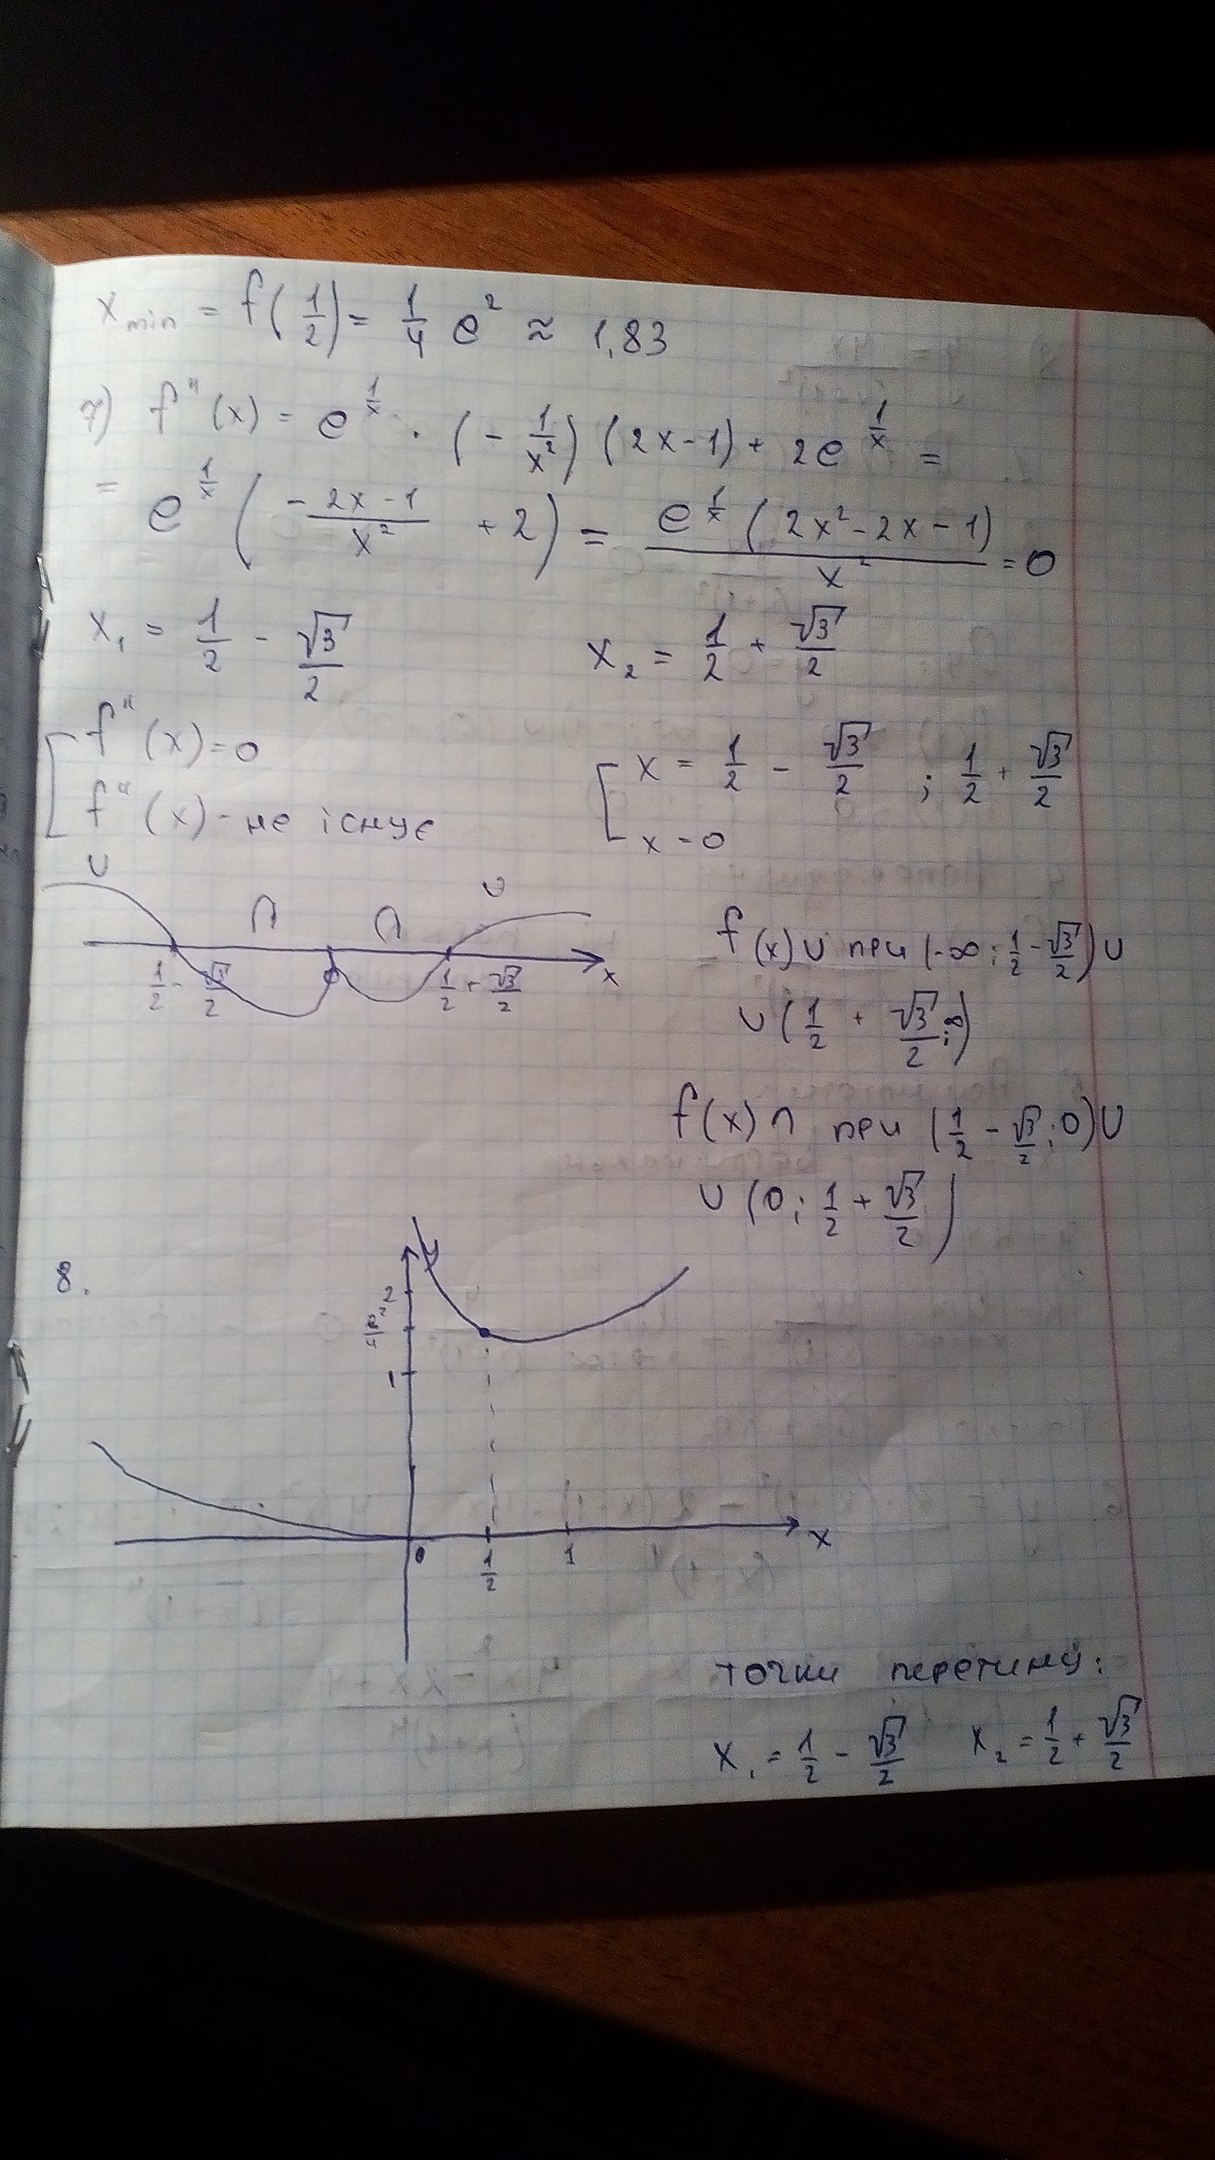 x min = f(1/2) = 1/4 e² ≈ 1,83
7) f''(x) = e^(1/x) · (-1/x²)(2x-1) + 2e^(1/x) =
= e^(1/x) (-(2x-1)/x² + 2) = e^(1/x)(2x²-2x-1)/x² = 0
x₁ = 1/2 - √3/2 x₂ = 1/2 + √3/2
[ f''(x) = 0 [ x = 1/2 - √3/2 ; 1/2 + √3/2
f''(x) - не існує x = 0
∪ ∩ ∩ ∪
1/2 - √3/2 0 1/2 + √3/2 x
f(x) ∪ при (-∞; 1/2 - √3/2) ∪
∪ (1/2 + √3/2; ∞)
f(x) ∩ при (1/2 - √3/2; 0) ∪
∪ (0; 1/2 + √3/2)
8.
y
2
e²/4
1
0 1/2 1 x
точки перетину:
x₁ = 1/2 - √3/2 x₂ = 1/2 + √3/2